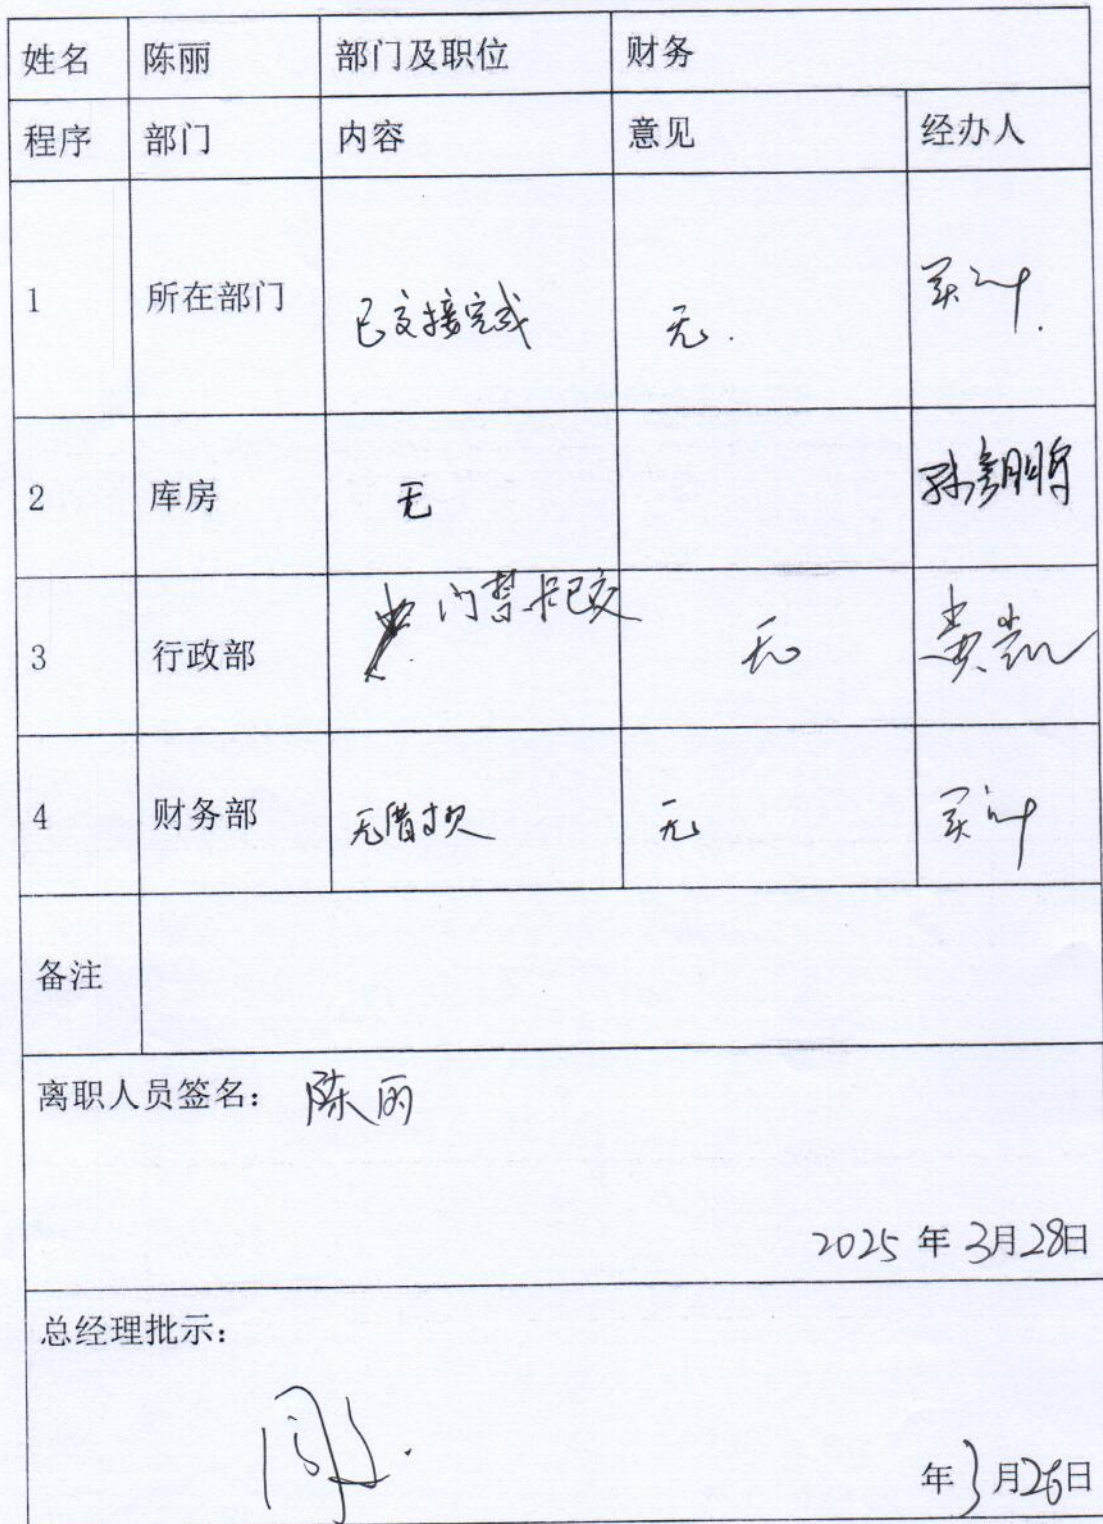 姓名 陈丽 部门及职位 财务
程序 部门 内容 意见 经办人
1 所在部门 已交接完成 无.
2 库房 无
3 行政部 门禁卡已交 无 娄凯
4 财务部 无借款 无
备注
离职人员签名: 陈丽
2025 年 3月28日
总经理批示:
年 3月 日